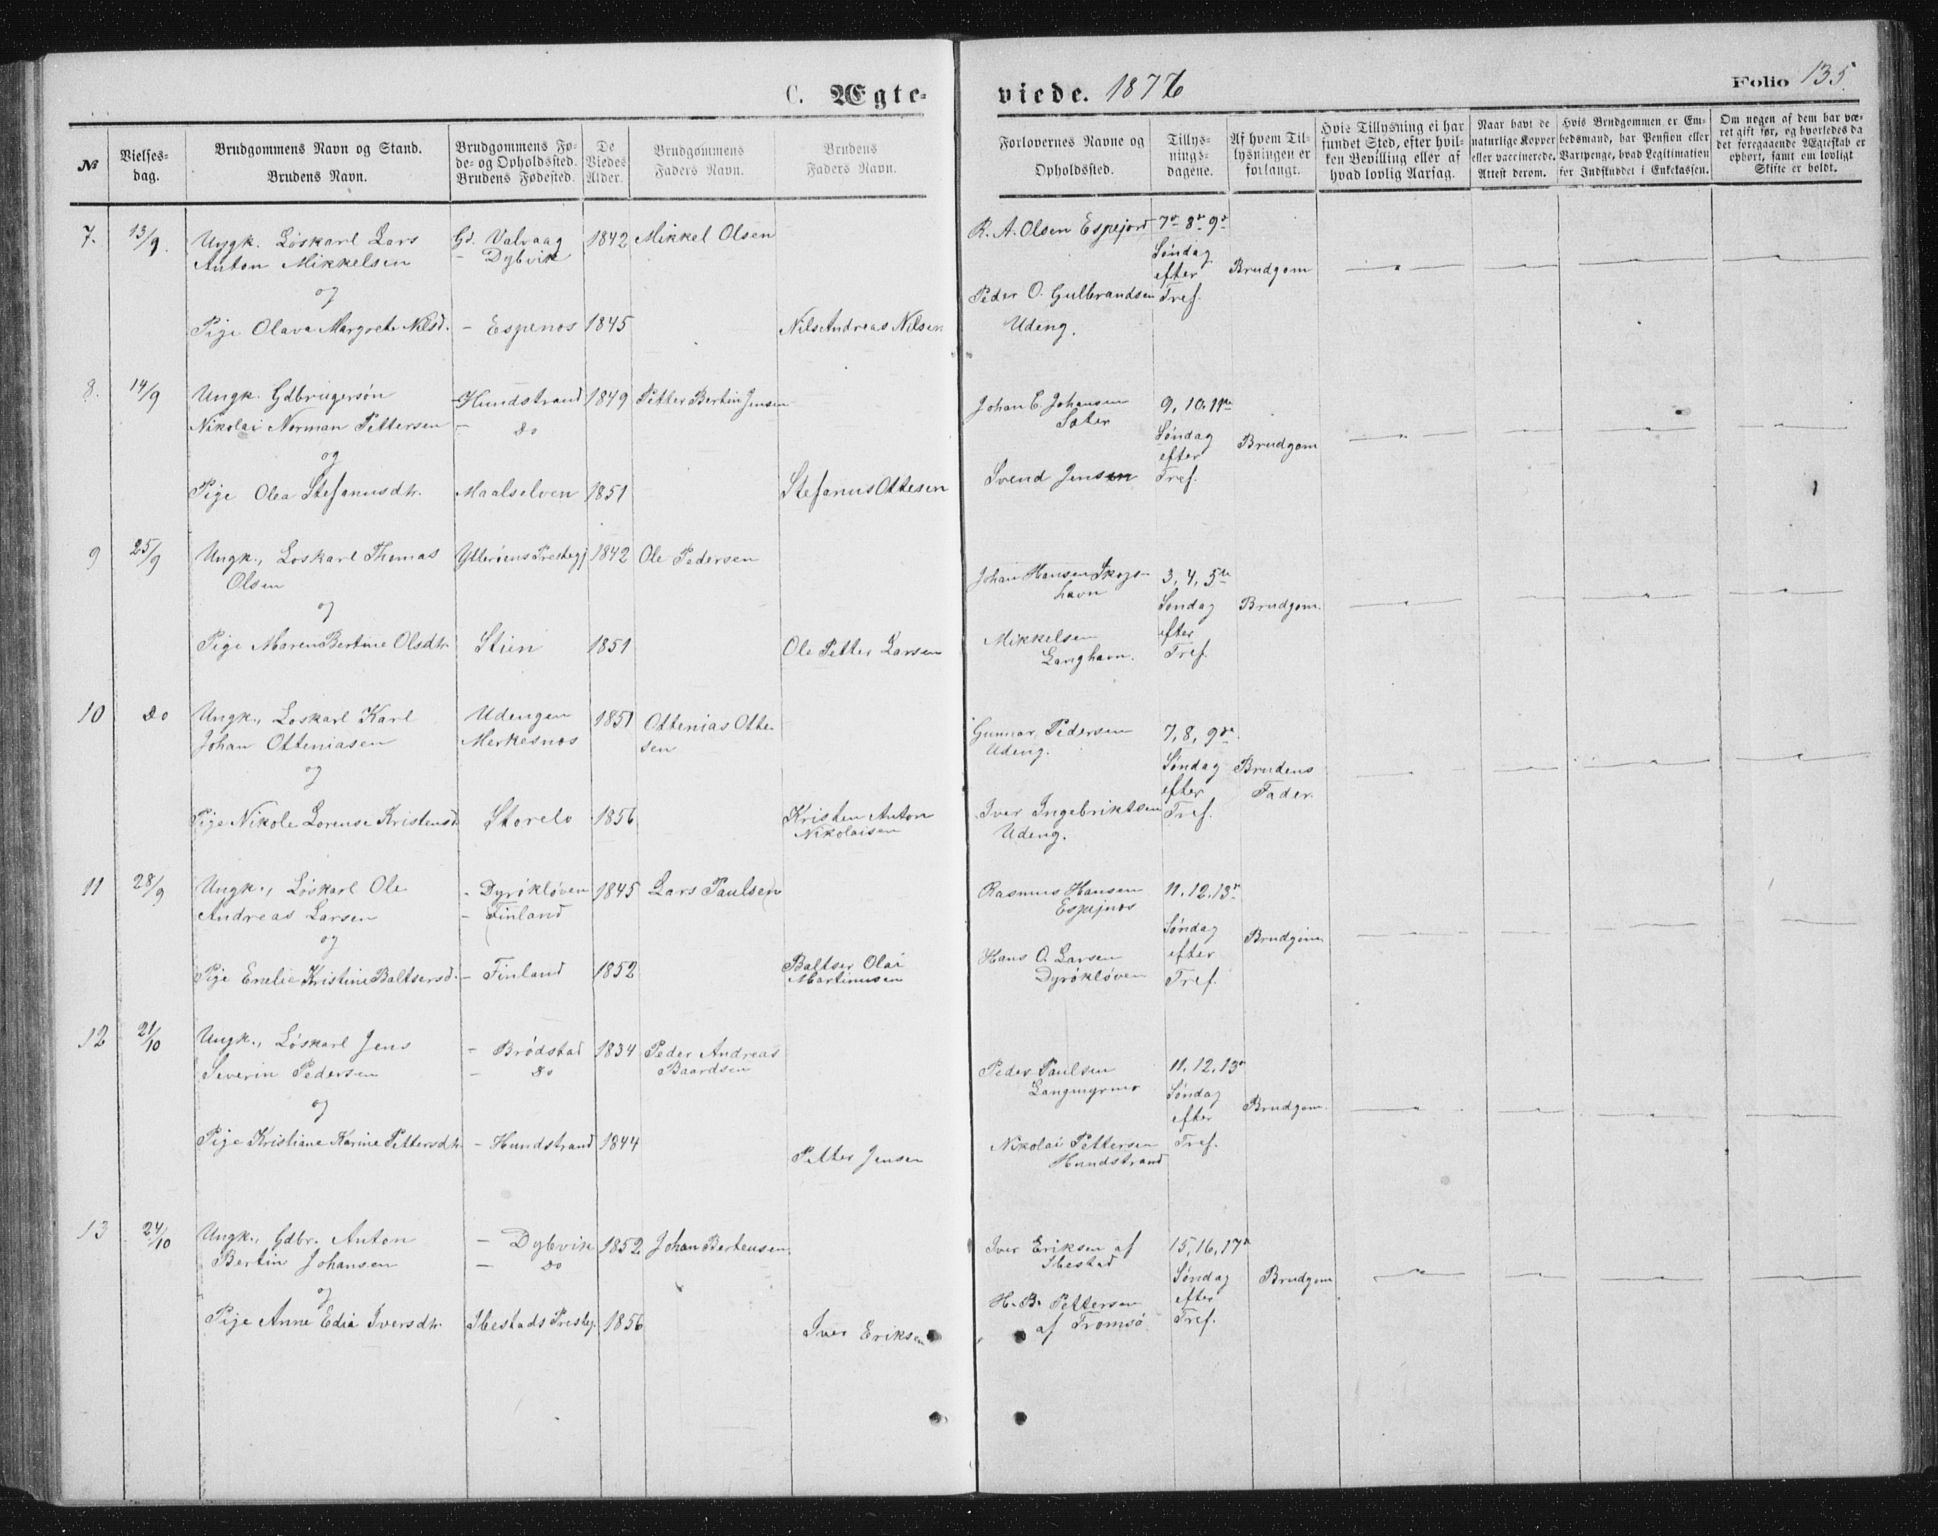 C. Ægteviede. 1876
Folio 135.
№
Vielsesdag.
Brudgommens Navn og Stand.
Brudens Navn.
Brudgommens Føde- og Opholdssted.
Brudens Fødested.
De Viedes Alder.
Brudgommens Faders Navn.
Brudens Faders Navn.
Forlovernes Navne og Opholdssted.
Tillysningsdagene.
Af hvem Tillysningen er forlangt.
Hvis Tillysning ei har fundet Sted, efter hvilken Bevilling eller af hvad lovlig Aarsag.
Naar havt de naturlige Kopper eller vaccinerede. Attest derom.
Hvis Brudgommen er Embedsmand, har Pension eller Vartpenge, hvad Legitimation for Indskuddet i Enkekassen.
Om nogen af dem har været gift før, og hvorledes da det foregaaende Ægteskab er ophørt, samt om lovligt Skifte er holdt.
7. 13/9. Ungk. Løskarl Lars Gd. Valvaag 1842 Mikkel Olsen R. A. Olsen Espejord 7de 8de 9de
Anton Mikkelsen - Dybvik Søndag
og efter Brudgom
Peder O. Gulbrandsen Tref.
Pige Olava Margrete Nilsd. - Espenes 1845 Nils Andreas Nilsen Udeng.
8. 14/9 Ungk. Gdbrugersøn - Hundstrand 1849 Petter Bertin Jensen Johan E. Johansen 9, 10, 11te
Nikolai Norman Pettersen - Do Sæter Søndag Brudgom
og efter
Pige Olea Stefanusdtr. Maalselven 1851 Stefanus Ottesen Svend Jensen Tref.
9 25/9 Ungk., Løskarl Thomas Ytterøens Prestegj 1842 Ole Pedersen Johan Hansen Skogshavn 3, 4, 5te
Olsen Søndag Brudgom.
og efter
Pige Maren Bertine Olsdtr. Stien 1851 Ole Petter Larsen Mikkelsen Langhavn. Tref.
10 Do Ungk., Løskarl Karl Udengen 1851 Ottenias Ottesen Gunnar Pedersen 7, 8, 9de
Johan Otteniasen Merkesnes Udeng. Søndag Brudens
og efter Fader.
Pige Nikole Lorense Kristensd. Storelv 1856 Kristen Anton Nikolaisen Iver Ingebriktsen Tref.
Udeng.
11 28/9 Ungk., Løskarl Ole - Dyrøkløven 1845 Lars Paulsen Rasmus Hansen 11, 12, 13de
Andreas Larsen - Finland Espejnes Søndag
og Hans O. Larsen efter Brudgom
Pige Emelie Kristine Baltsersd. - Finland 1852 Baltser Olai Martinusen Dyrøkløven Tref.
12 21/10 Ungk., Løskarl Jens - Brødstad 1834 Peder Andreas Peder Paulsen 11, 12, 13de
Severin Pedersen - Do Baardsen Langmyrmo Søndag
og efter Brudgom.
Pige Kristiane Karine Pettersdtr. - Hundstrand 1844 Petter Jensen Nikolai Pettersen Tref.
Hundstrand
13 24/10 Ungk., Gdbr. Anton - Dybvik 1852 Johan Bertensen Iver Eriksen af 15, 16, 17de
Bertin Johansen - Do Ibestad Søndag Brudgom
og H. B. Pettersen efter
Pige Anne Edia Iversdtr. Ibestads Prestegj. 1856 Iver Eriksen af Tromsø Tref.